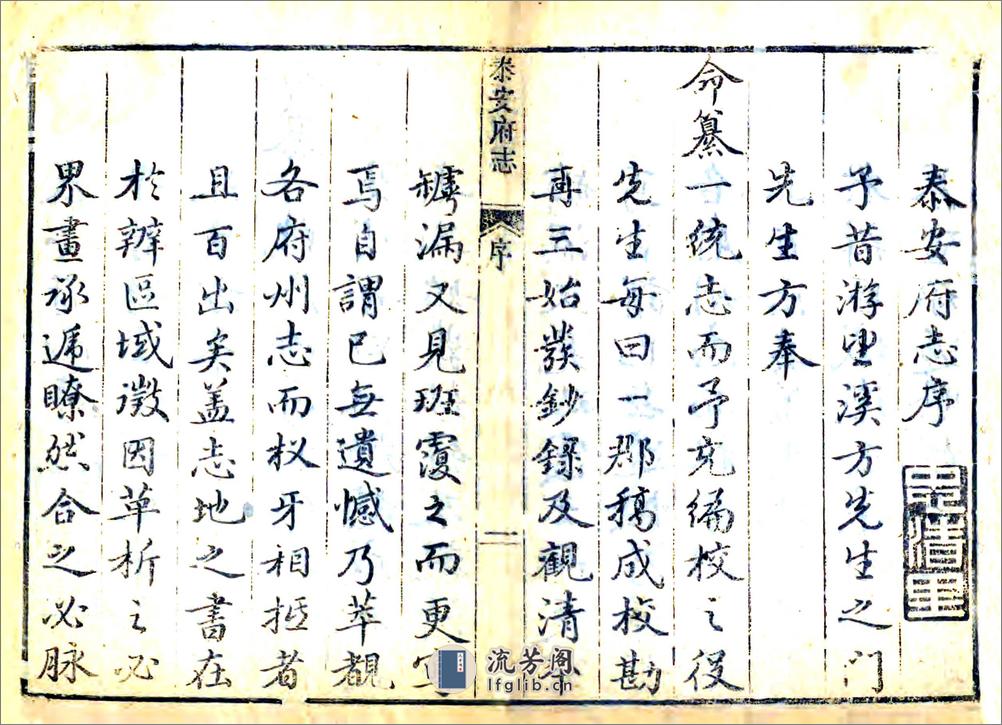 泰安府志序
予昔游望溪方先生之門
先生方奉
命纂一統志而予充编校之役
先生每曰一郡稿成校勘
再三始發鈔錄及觀清本
泰安府志
序
一
罅漏又見班々覆之而更定
焉自謂已無遺憾乃萃觀
各府州志而杈牙相抵者
且百出矣盖志地之書在
於辨區域徵因革析之必
界畫承遞瞭然合之必脉
流芳阁
lfglib.cn